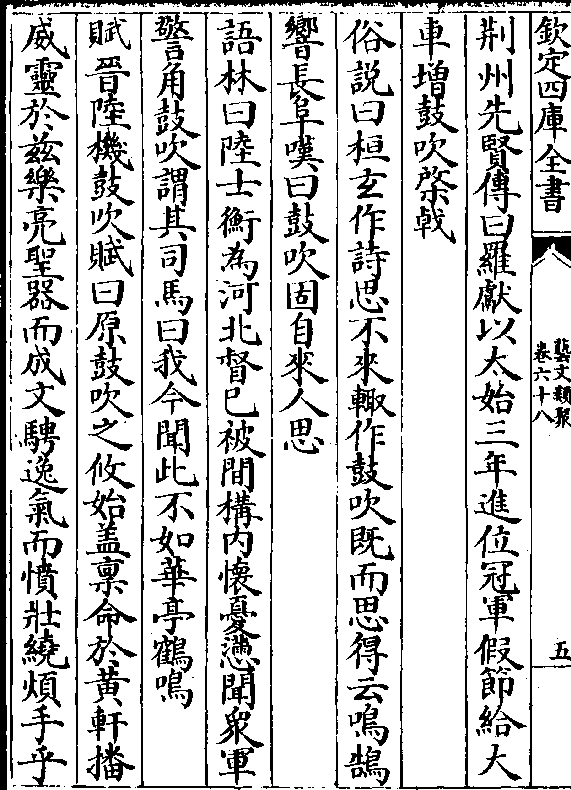 欽定四庫全書
藝文類聚
卷六十八
五
荆州先賢傳曰羅獻以太始三年進位冠軍假節給大
車增鼓吹棨戟
俗説曰桓玄作詩思不來輙作鼓吹既而思得云鳴鵠
響長阜嘆曰鼓吹固自來人思
語林曰陸士衡為河北督已被間構内懷憂懣聞衆軍
警角鼓吹謂其司馬曰我今聞此不如華亭鶴鳴
賦晉陸機鼓吹賦曰原鼓吹之攸始盖禀命於黄軒播
威靈於兹樂亮聖器而成文騁逸氣而憤壯繞煩手乎